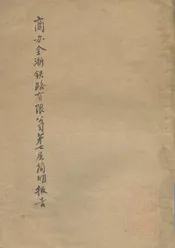 商办全浙铁路有限公司第七届简明报告